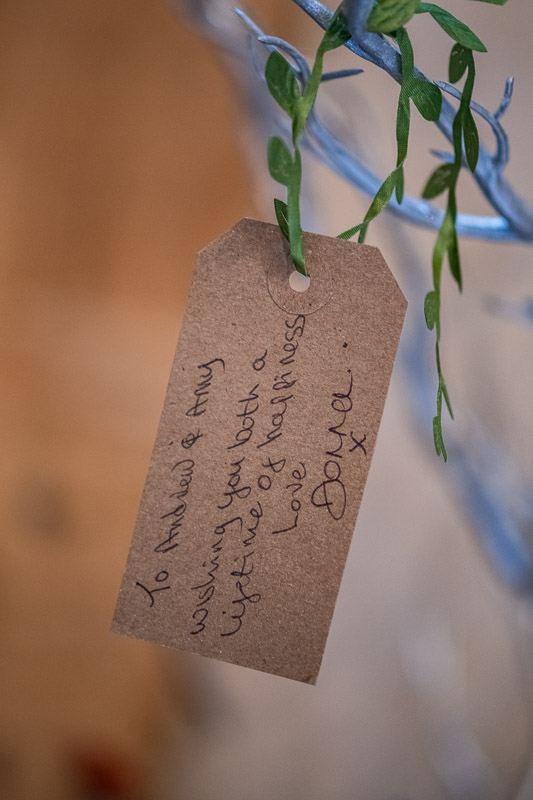 To Andrew & Amy
wishing you both a
lifetime of happiness
Love
Donna.
x